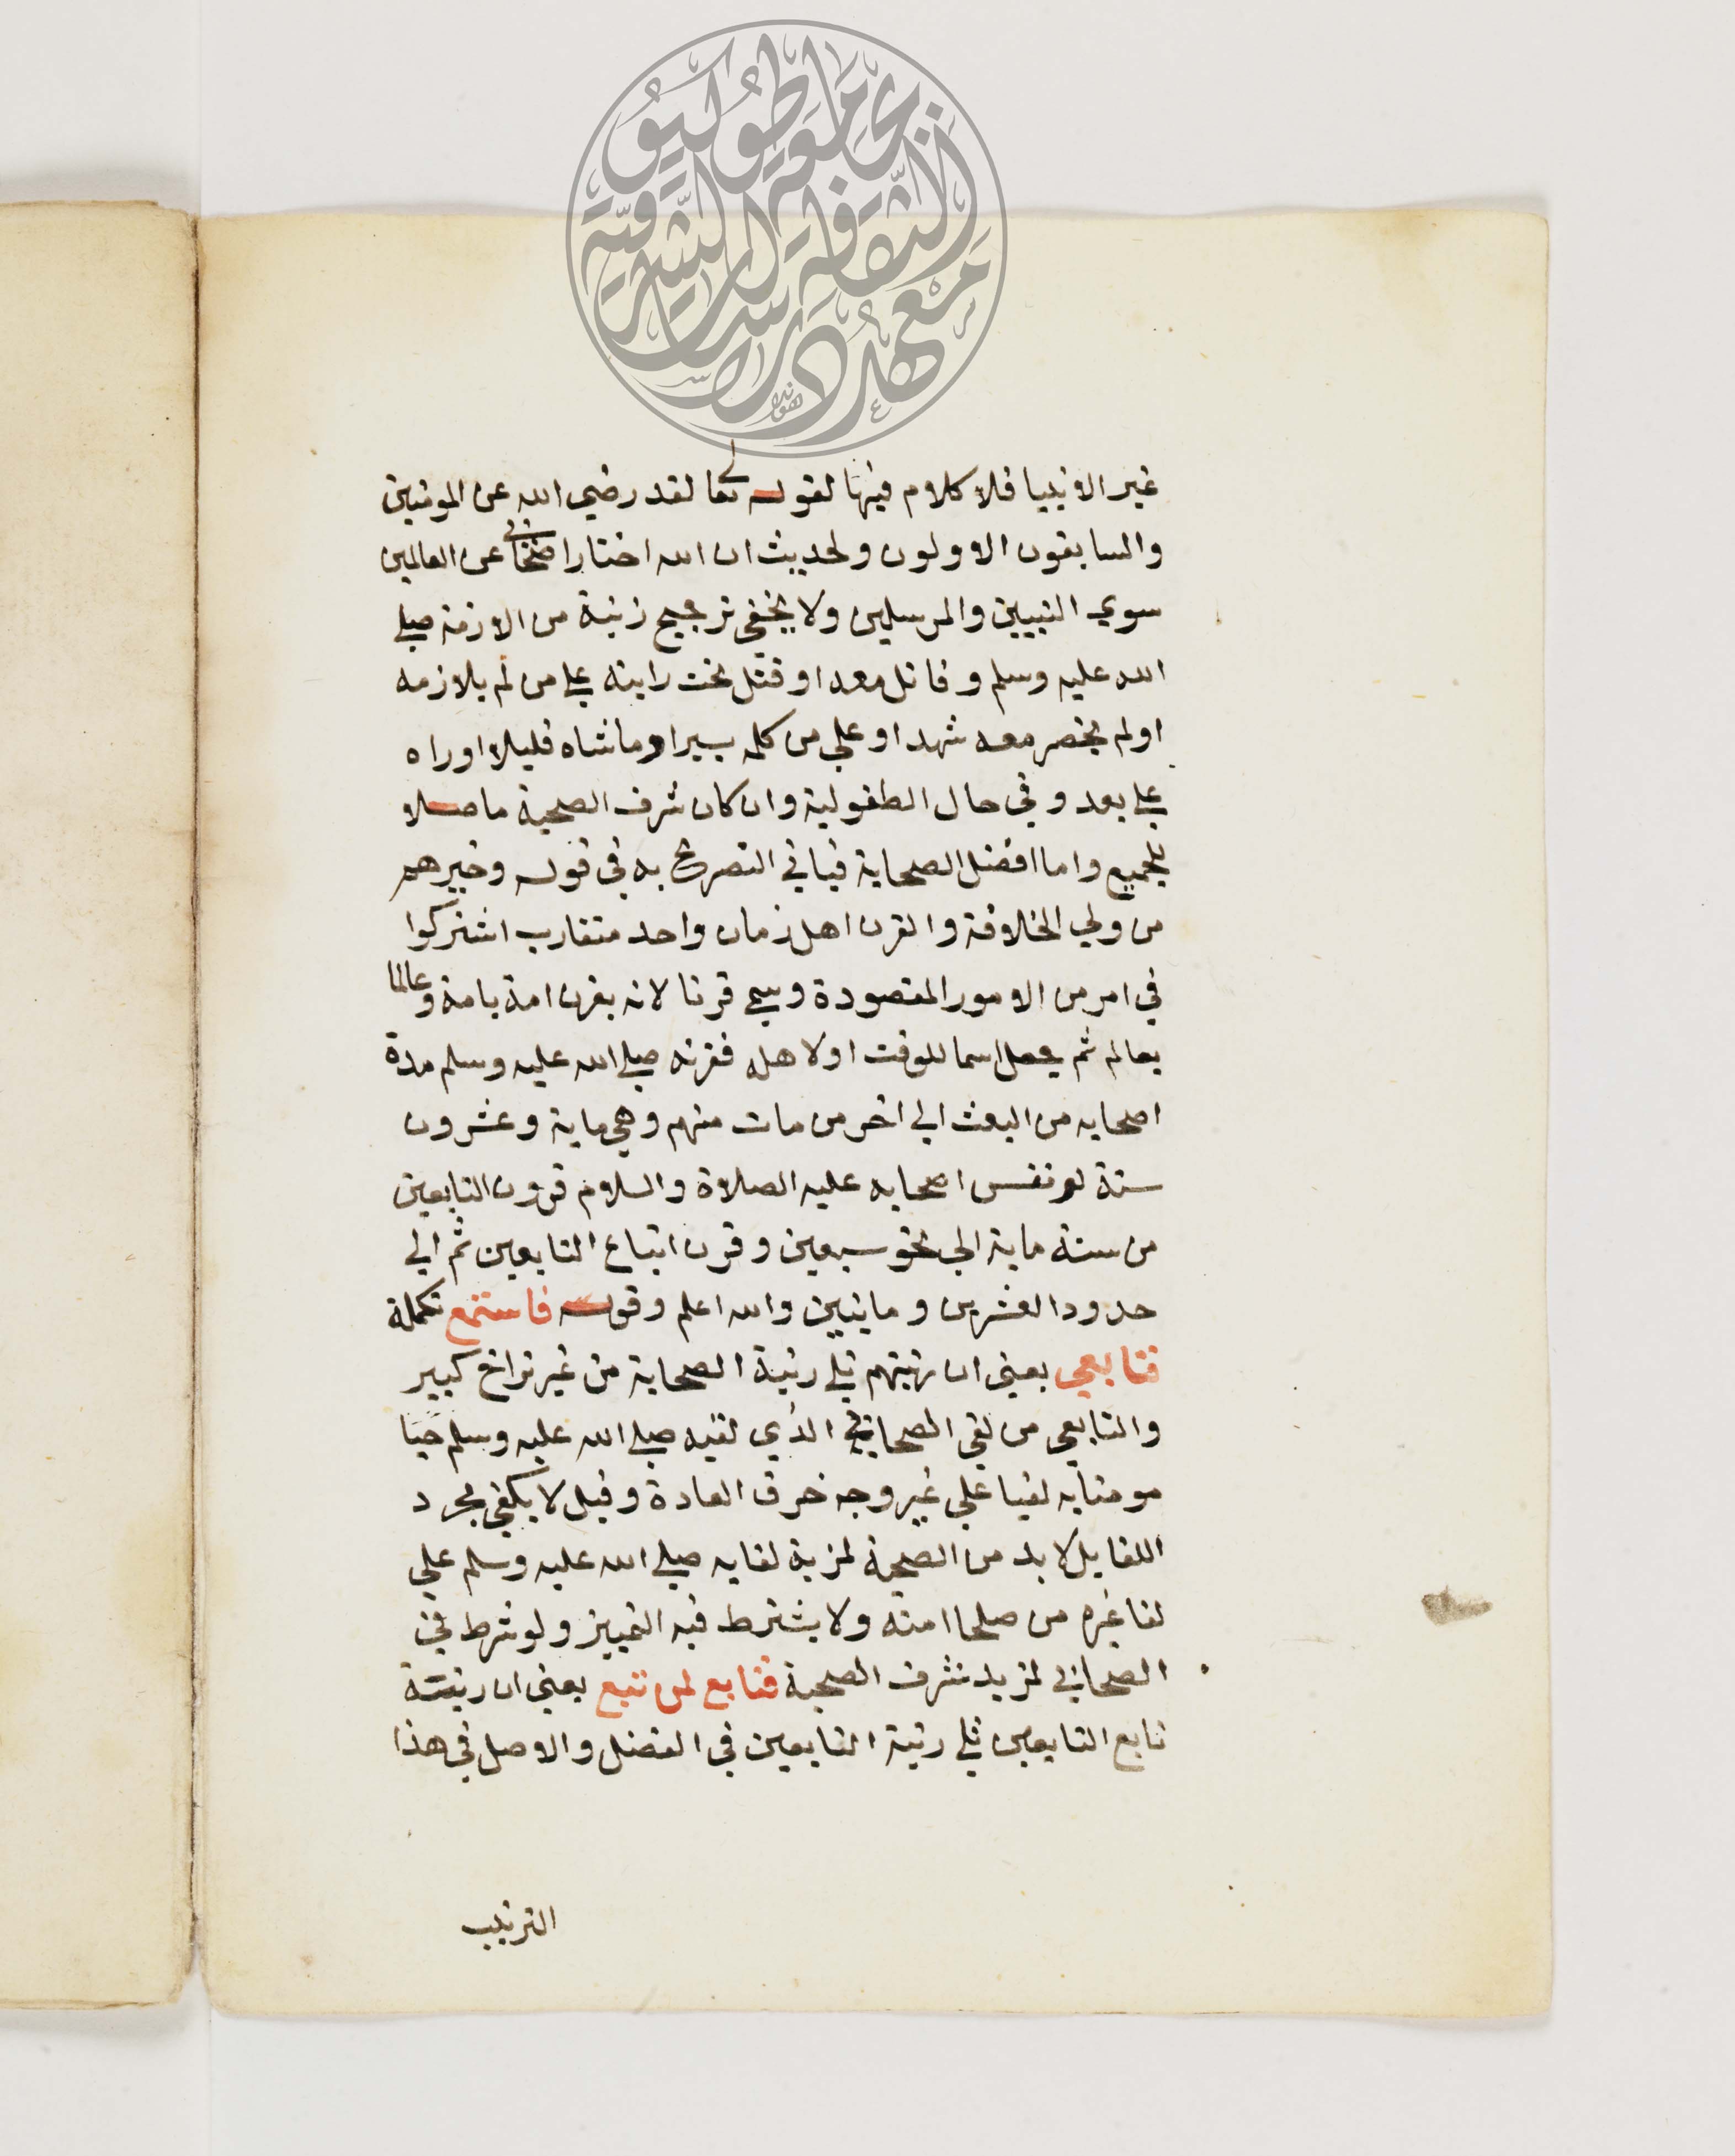 غير الانبيا فلا كلام فيها لقوله تعالى لقد رضي الله عن المومنين
والسابقون الاولون ولحديث ان الله اختار اصحابي عن العالمين
سوي النبيين والمرسلين ولا يخفي ترجيح رتبة من لازمه صلي
الله عليه وسلم وقاتل معه او قتل تحت رايته علي من لم يلازمه
اولم يحضر معه شهدا وعلي من كلمه يسيرا وماشاه قليلا اوراه
علي بعد وفي حال الطفولية وان كان شرف الصحبة حاصلا
للجميع واما افضل الصحابة فياتي التصريح به في قوله وخيرهم
من ولي الخلافة والقرن اهل زمان واحد متقارب اشتركوا
في امر من الامور المقصودة وسمي قرنا لانه يقرن امة بامة وعالما
بعالم ثم جعل اسما للوقت اولاهله فقرنه صلي الله عليه وسلم مدة
اصحابه من البعث الي اخر من مات منهم وهي ماية وعشرون
سنة نفس اصحابه عليه الصلاة والسلام قرون التابعين
من سنة ماية الي نحو سبعين وقرن اتباع التابعين ثم الي
حدود العشرين ومايتين والله اعلم وقوله فاستمع تكملة
فتابعي يعني ان رتبتهم تلي رتبة الصحابة من غير تراخ كبير
والتابعي من لقي الصحابي الذي لقيه صلي الله عليه وسلم حيا
مومنا به لقيا علي غير وجه خرق العادة وقيل لا يكفي مجرد
اللقا بل لا بد من الصحبة لمزية لقايه صلي الله عليه وسلم علي
لقا غيره من صلحا امته ولا يشترط فيه التمييز ولو شرط في
الصحابي لمزيد شرف الصحبة فتابع لمن تبع يعني ان رتبة
تابع التابعين تلي رتبة التابعين في الفضل والاصل في هذا
الترتيب
جامعة طوكيو
معهد الثقافة الدراسات الشرقية